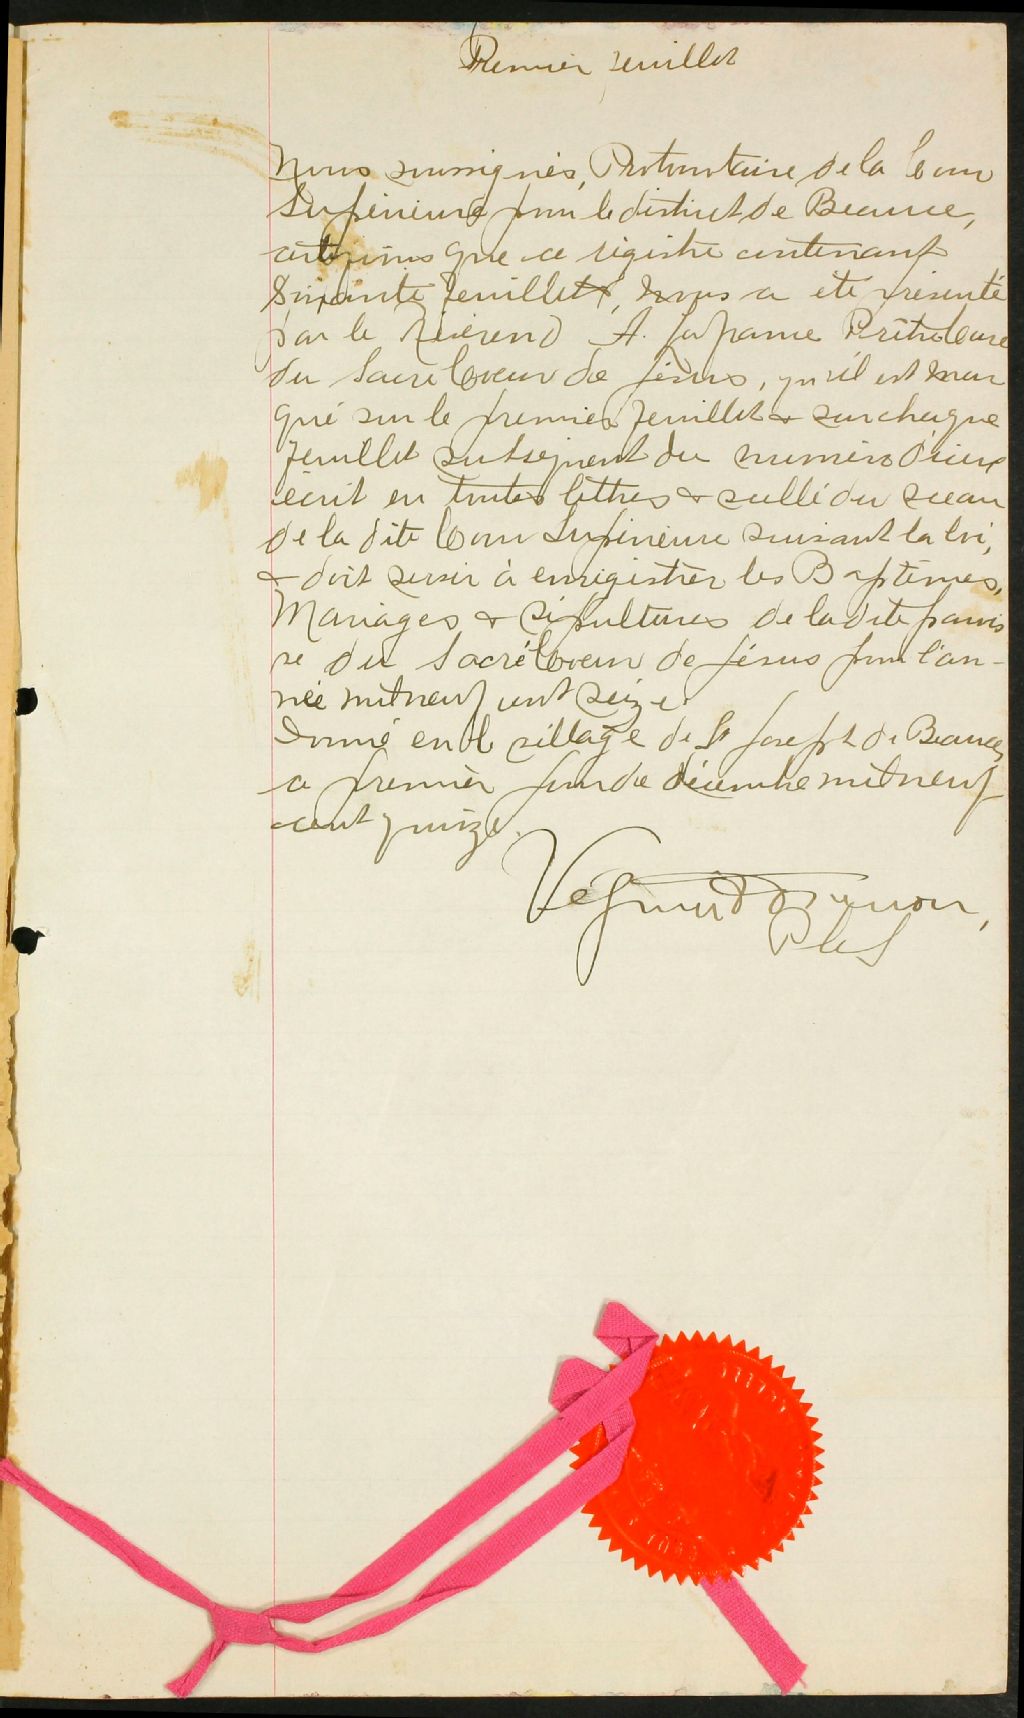 Premier feuillet
Nous soussignés, Protonotaire de la Cour
Supérieure pour le district de Beauce,
certifions que ce régistre contenant
Soixante feuillets, nous a été présenté
par le Révérend A. Lafrance Prêtre Curé
du Sacré Coeur de Jésus, qu'il est mar
qué sur le premier feuillet & sur chaque
feuillet subséquent du numéro d'iceux
écrit en toutes lettres & scellé du sceau
de la dite Cour Supérieure suivant la loi,
& doit servir à enregistrer les Baptêmes,
Mariages & Sépultures de la dite parois
se du Sacré Coeur de Jésus pour l'an-
née mil neuf cent seize
Donné en le village de St Joseph de Beauce,
ce premier jour de décembre mil neuf
cent quinze.
PCS